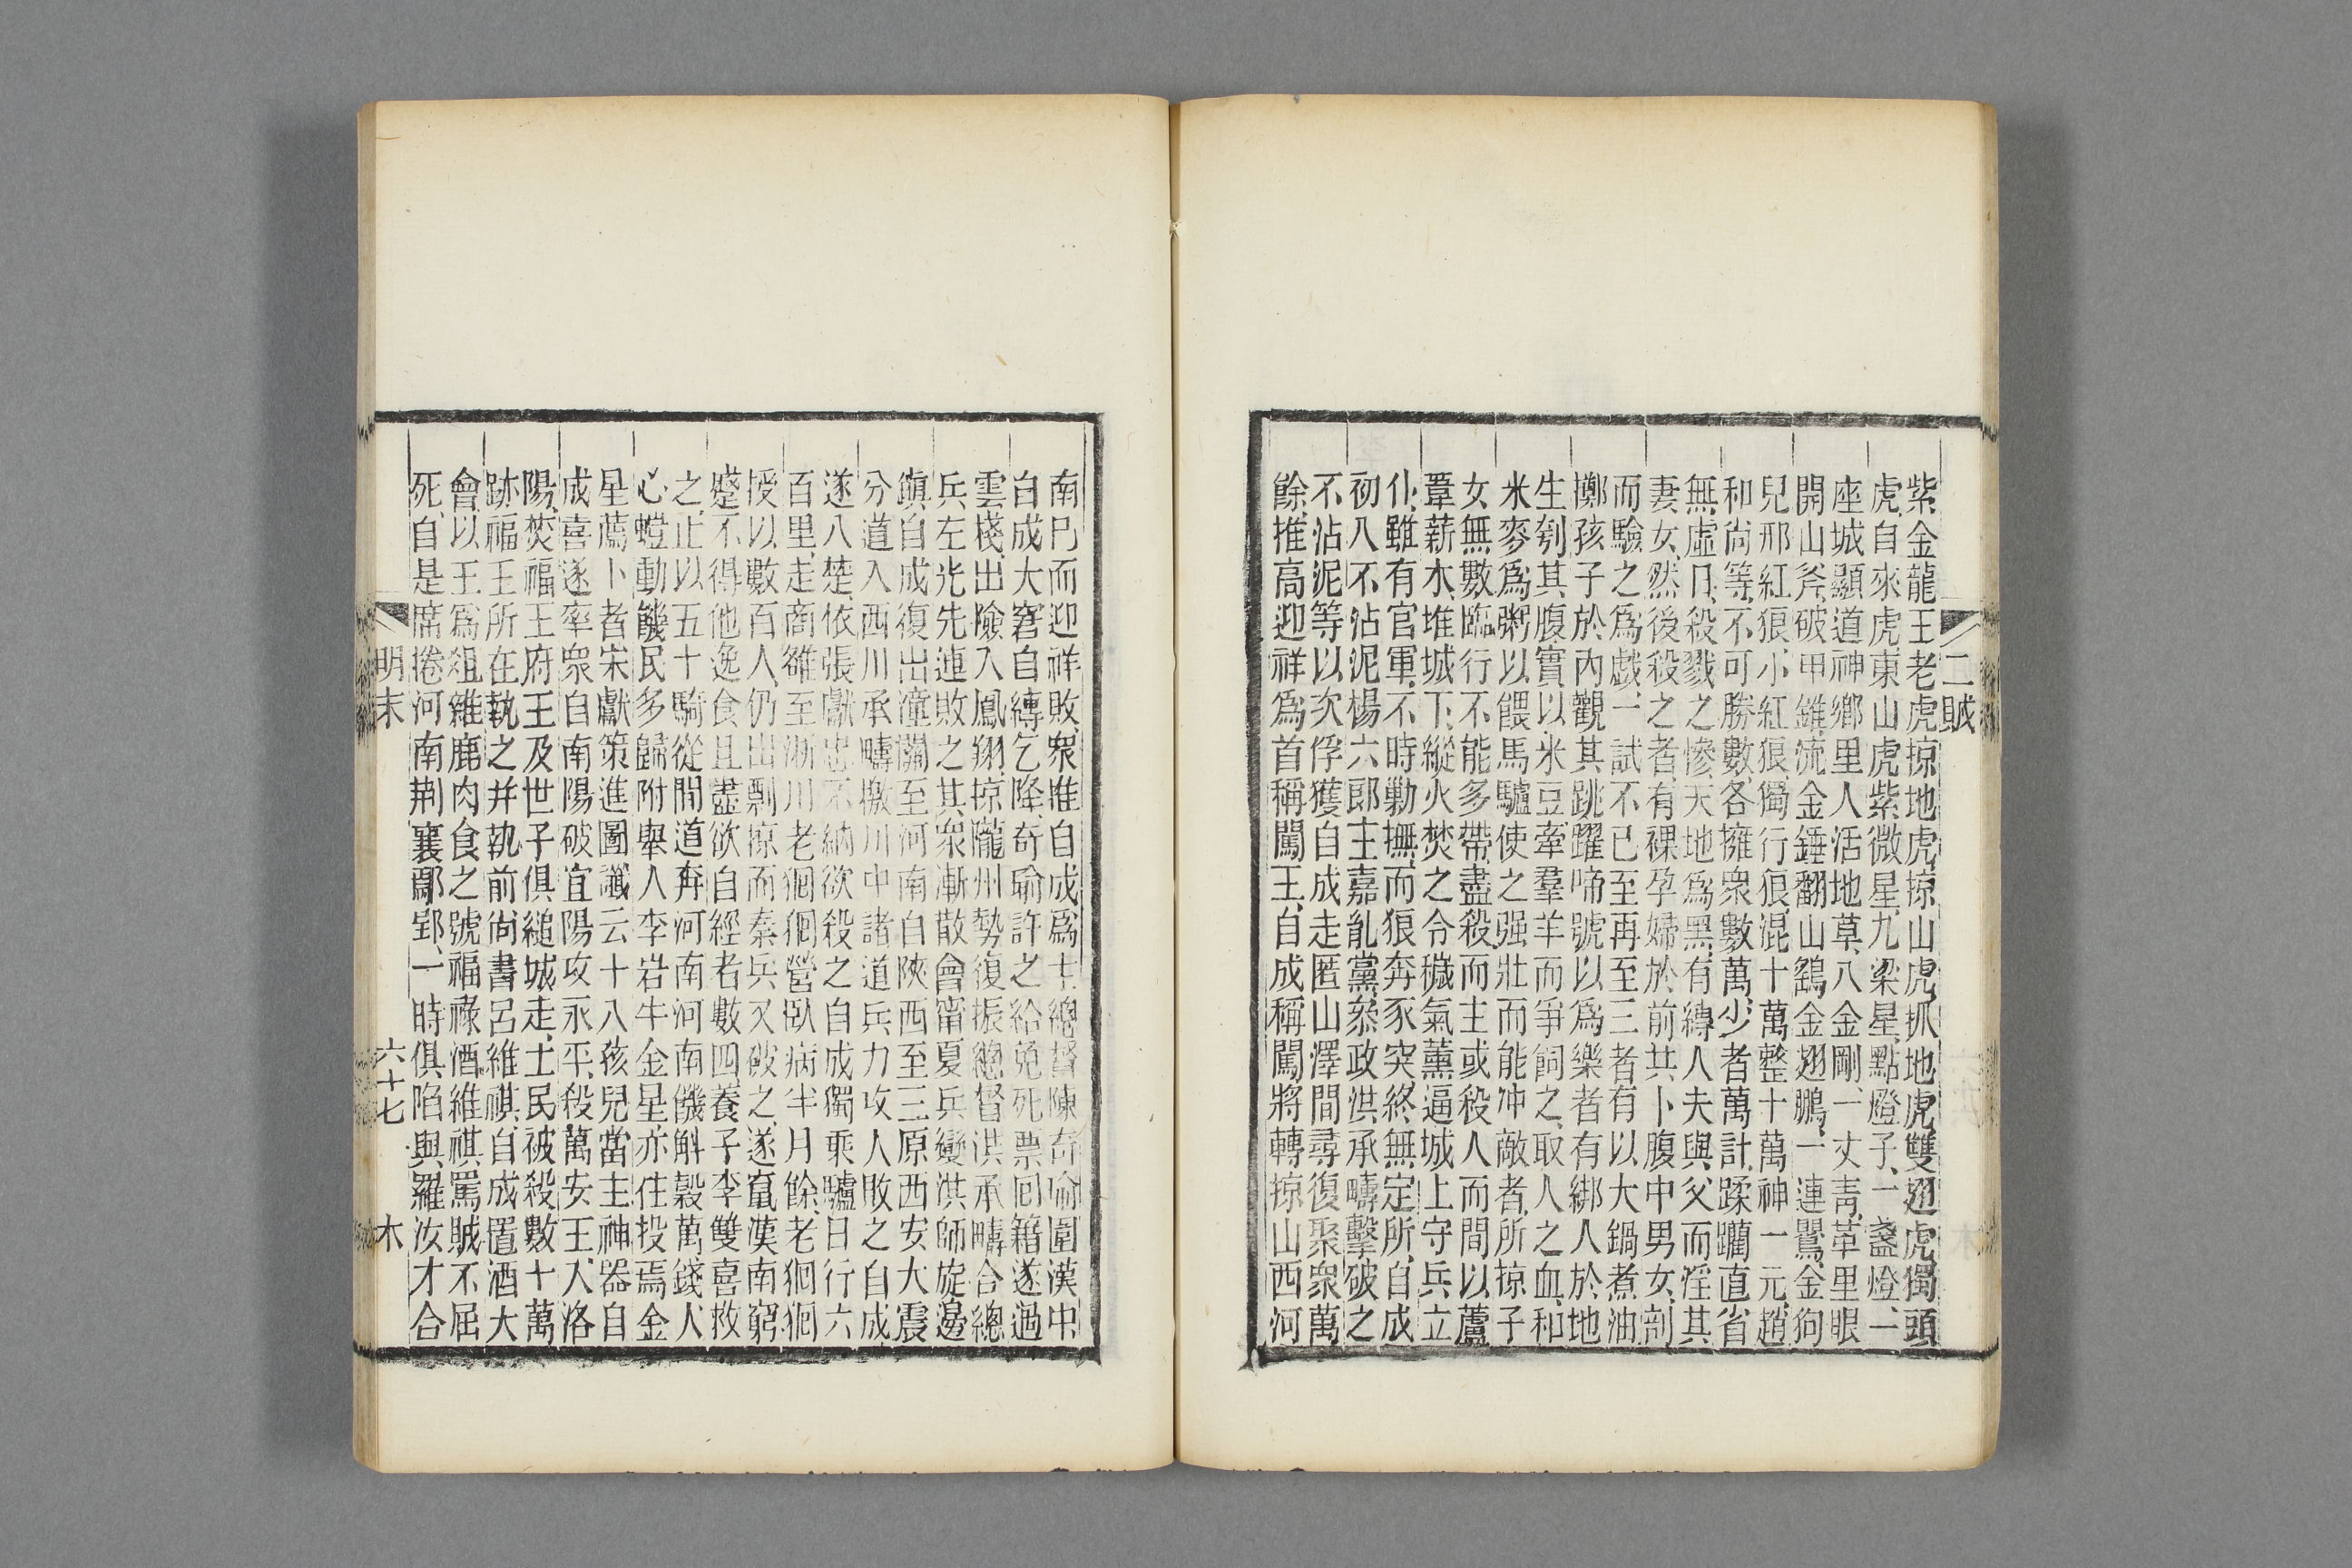 二賊
紫金龍王老虎掠地虎掠山虎抓地虎雙翅虎獨頭
虎自來虎東山虎紫微星九梁星點燈子一盞燈一
座城顯道神鄉里人活地草八金剛一丈青革里眼
開山斧破甲錐流金錘翻山鷂金翅鵬一連鷪金狗
兒邢紅狼小紅狼獨行狼混十萬整十萬神一元趙
和尚等不可勝數各擁衆數萬少者萬計蹂躪直省
無虛日殺戮之慘天地爲黑有縛人夫與父而淫其
妻女然後殺之者有裸孕婦於前共卜腹中男女剖
而驗之爲戱一試不已至再至三者有以大鍋煮油
擲孩子於內觀其跳躍啼號以爲樂者有綁人於地
生刳其腹實以米豆牽羣羊而爭飼之取人之血和
米麥爲粥以餵馬驢使之强壯而能冲敵者所掠子
女無數臨行不能多帶盡殺而主或殺人而間以蘆
葦薪木堆城下縱火焚之令穢氣薰逼城上守兵立
仆雖有官軍不時勦撫而狼奔豕突終無定所自成
初入不沾泥楊六郎主嘉亂黨叅政洪承疇擊破之
不沾泥等以次俘獲自成走匿山澤間尋復聚衆萬
餘推高迎祥爲首稱闖王自成稱闖將轉掠山西河
南巳而迎祥敗衆推自成爲主總督陳奇瑜圍漢中
自成大窘自縛乞降奇瑜許之給免死票囘籍遂過
雲棧出險入鳳翔掠隴州勢復振總督洪承疇合總
兵左光先連敗之其衆漸散會甯夏兵變洪師旋邊
鎮自成復出潼關至河南自陝西至三原西安大震
分道入西川承疇檄川中諸道兵力攻人敗之自成
遂入楚依張獻忠不納欲殺之自成獨乘驢日行六
百里走商雒至淅川老㹢㹢營臥病半月餘老㹢㹢
授以數百人仍出剽掠而秦兵又破之遂竄漢南窮
蹙不得他逸食且盡欲自經者數四養子李雙喜救
之止以五十騎從間道奔河南河南饑斛穀萬錢人
心螳動饑民多歸附舉人李岩牛金星亦往投焉金
星薦卜者宋獻策進圖讖云十八孩兒當主神器自
成喜遂率衆自南陽破宜陽攻永平殺萬安王入洛
陽焚福王府王及世子俱縋城走士民被殺數十萬
跡福王所在執之并執前尚書呂維祺自成置酒大
會以王爲俎雜鹿肉食之號福祿酒維祺罵賊不屈
死自是席捲河南荆襄鄖郢一時俱陷與羅汝才合
明末
六十七
木